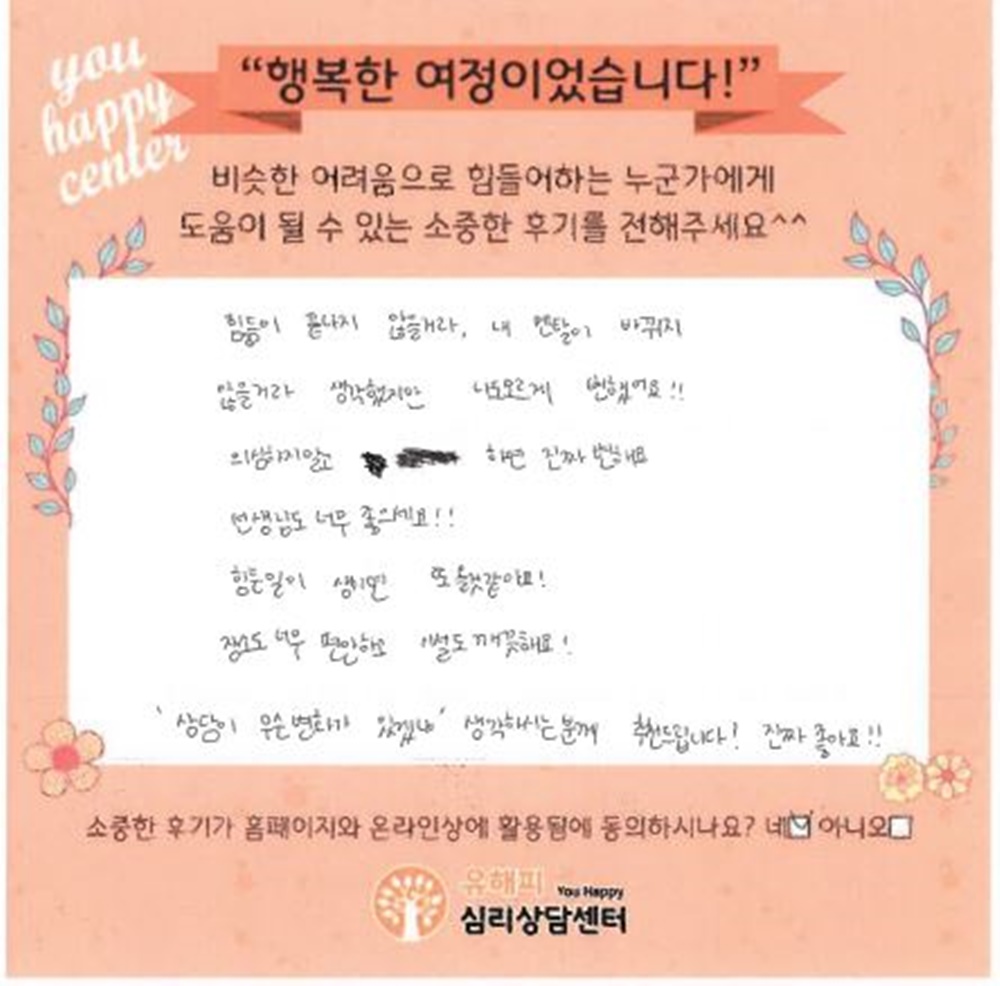 you
happy
center
“행복한 여정이었습니다!”
비슷한 어려움으로 힘들어하는 누군가에게
도움이 될 수 있는 소중한 후기를 전해주세요^^
힘듦이 끝나지 않을거라, 내 멘탈이 바뀌지
않을거라 생각했지만 나도모르게 변했어요!!
의심하지말고 하면 진짜 변해요
선생님도 너무 좋으세요!!
힘든일이 생기면 또 올것같아요!
장소도 너무 편안하고 시설도 깨끗해요!
'상담이 무슨 변화가 있겠냐' 생각하시는 분께 추천드립니다! 진짜 좋아요!!
소중한 후기가 홈페이지와 온라인상에 활용됨에 동의하시나요? 네☑ 아니오☐
유해피 You Happy
심리상담센터